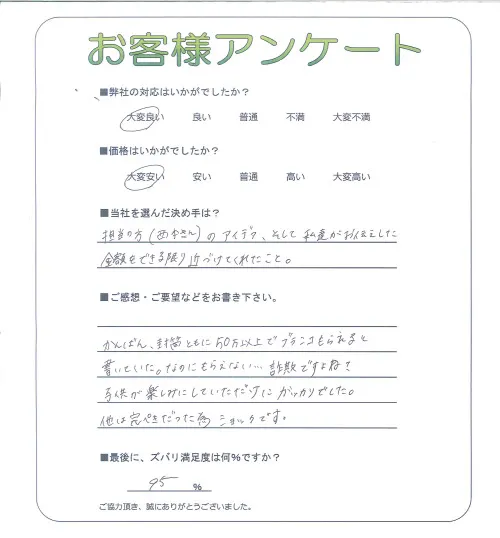 お客様アンケート
■弊社の対応はいかがでしたか？
大変良い 良い 普通 不満 大変不満
■価格はいかがでしたか？
大変安い 安い 普通 高い 大変高い
■当社を選んだ決め手は？
担当の方(西本さん)のアイデア、そして私達がお伝えした
金額をできる限り近づけてくれたこと。
■ご感想・ご要望などをお書き下さい。
かんばん、封筒ともに50万以上でブランコもらえると
書いていた。なのにもらえない…詐欺ですよね？
子供が楽しみにしていただけにガッカリでした。
他は完ぺきだった為ショックです。
■最後に、ズバリ満足度は何%ですか？
95 %
ご協力頂き、誠にありがとうございました。